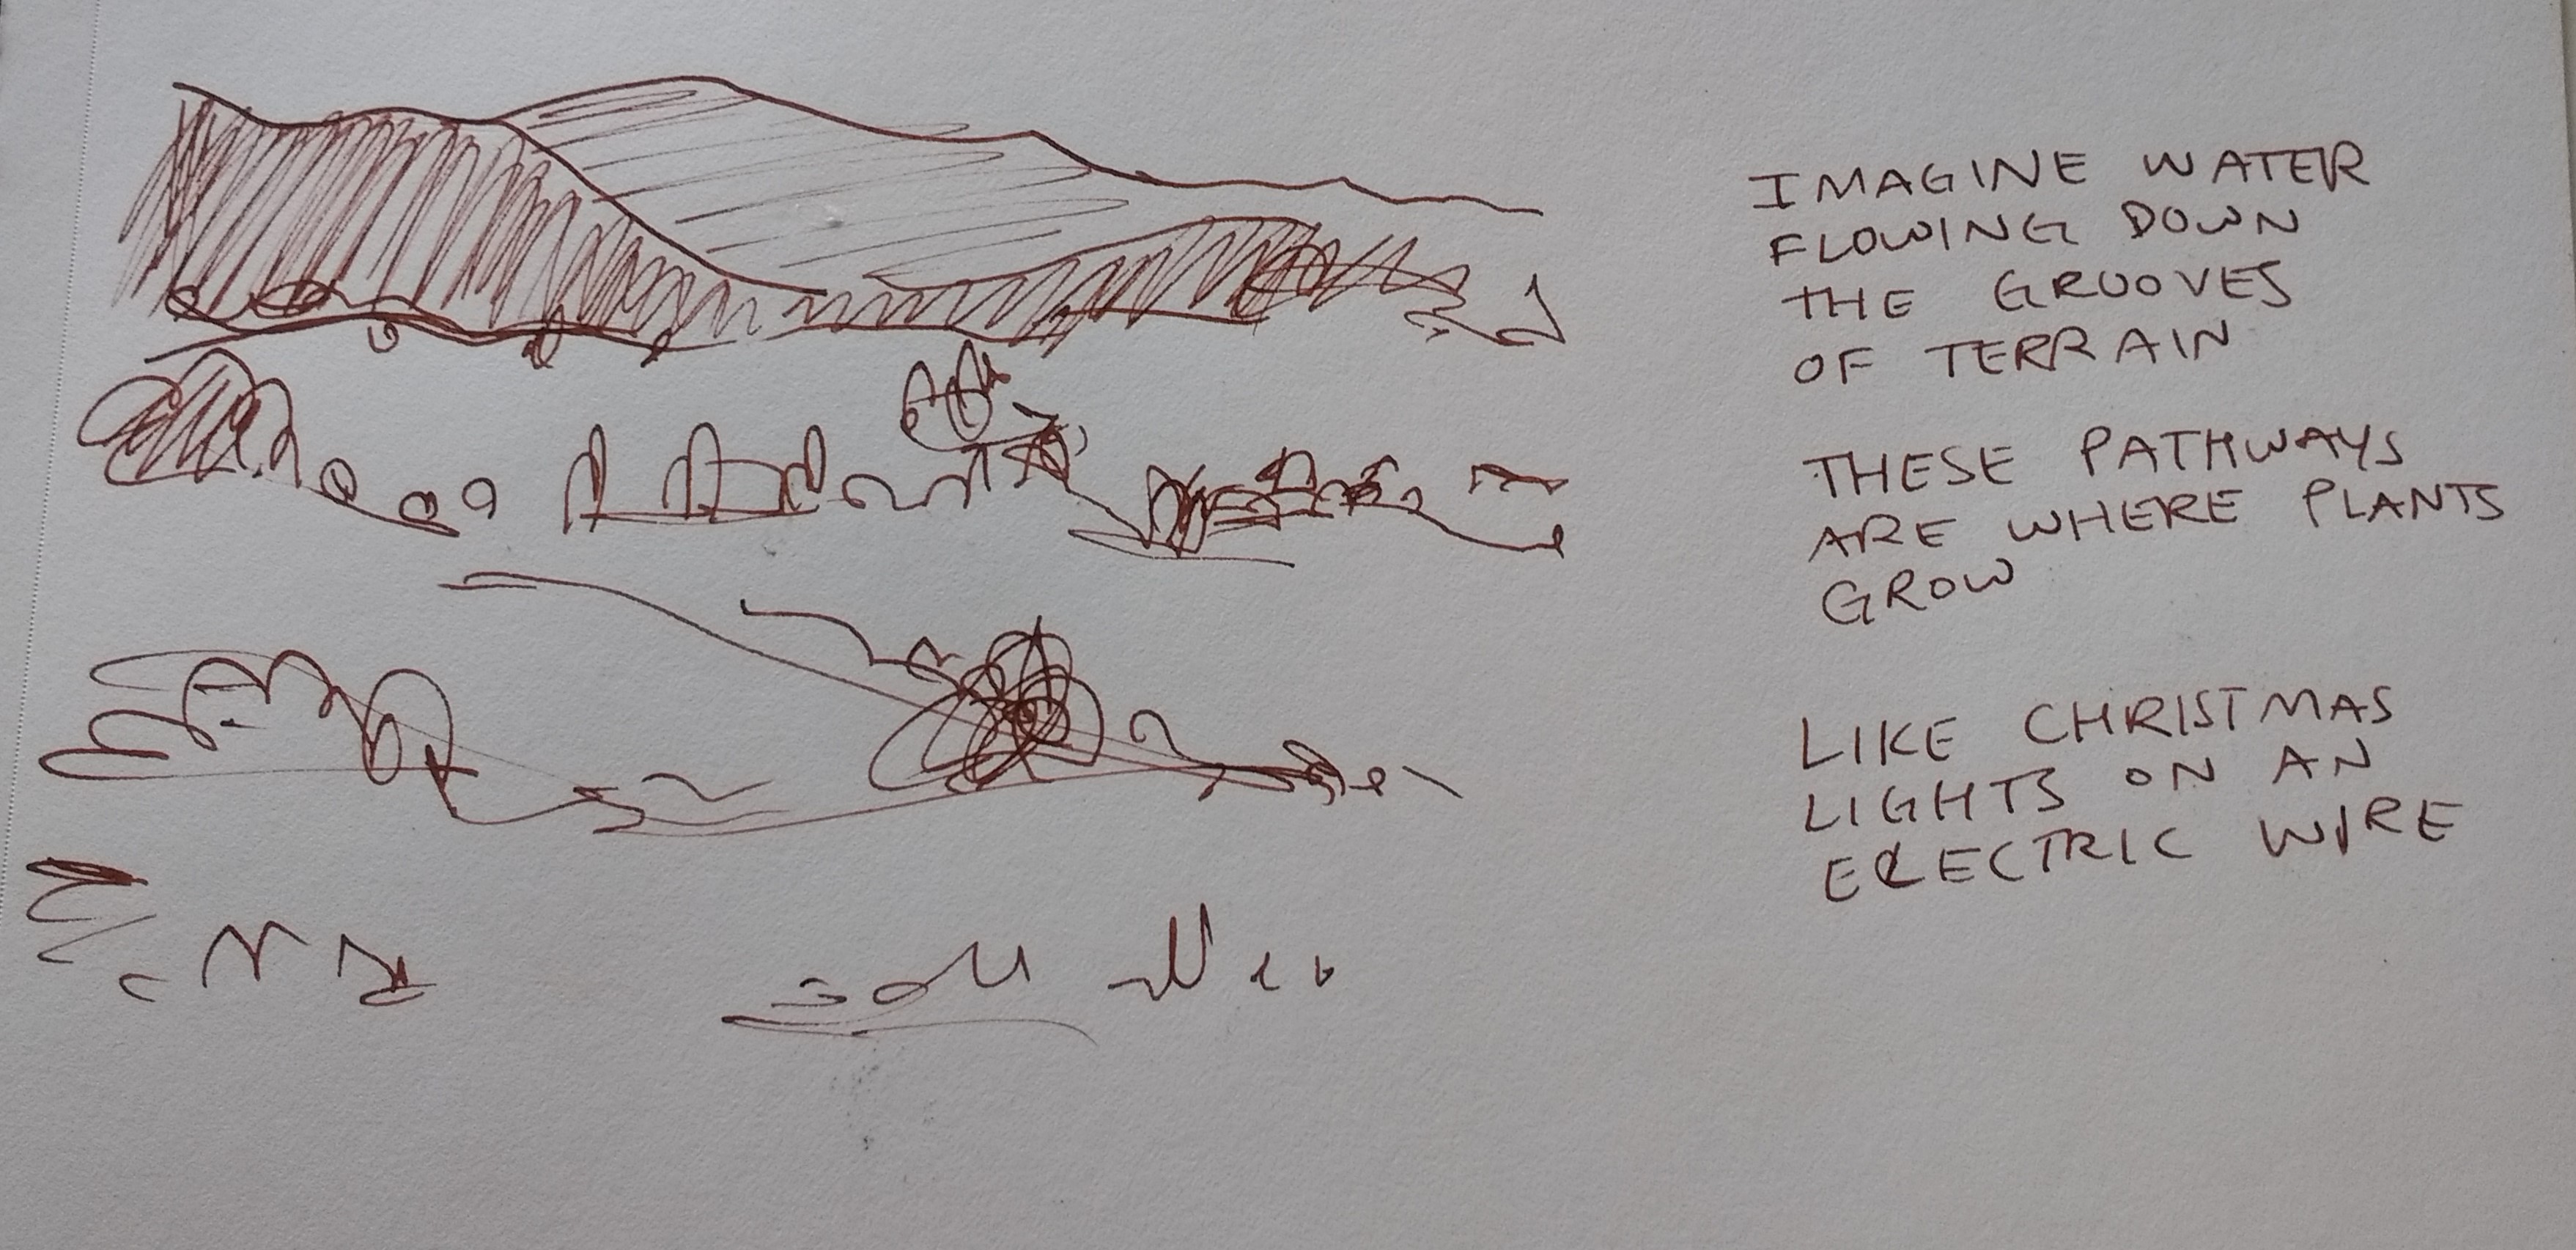 IMAGINE WATER
FLOWING DOWN
THE GROOVES
OF TERRAIN
THESE PATHWAYS
ARE WHERE PLANTS
GROW
LIKE CHRISTMAS
LIGHTS ON AN
ELECTRIC WIRE